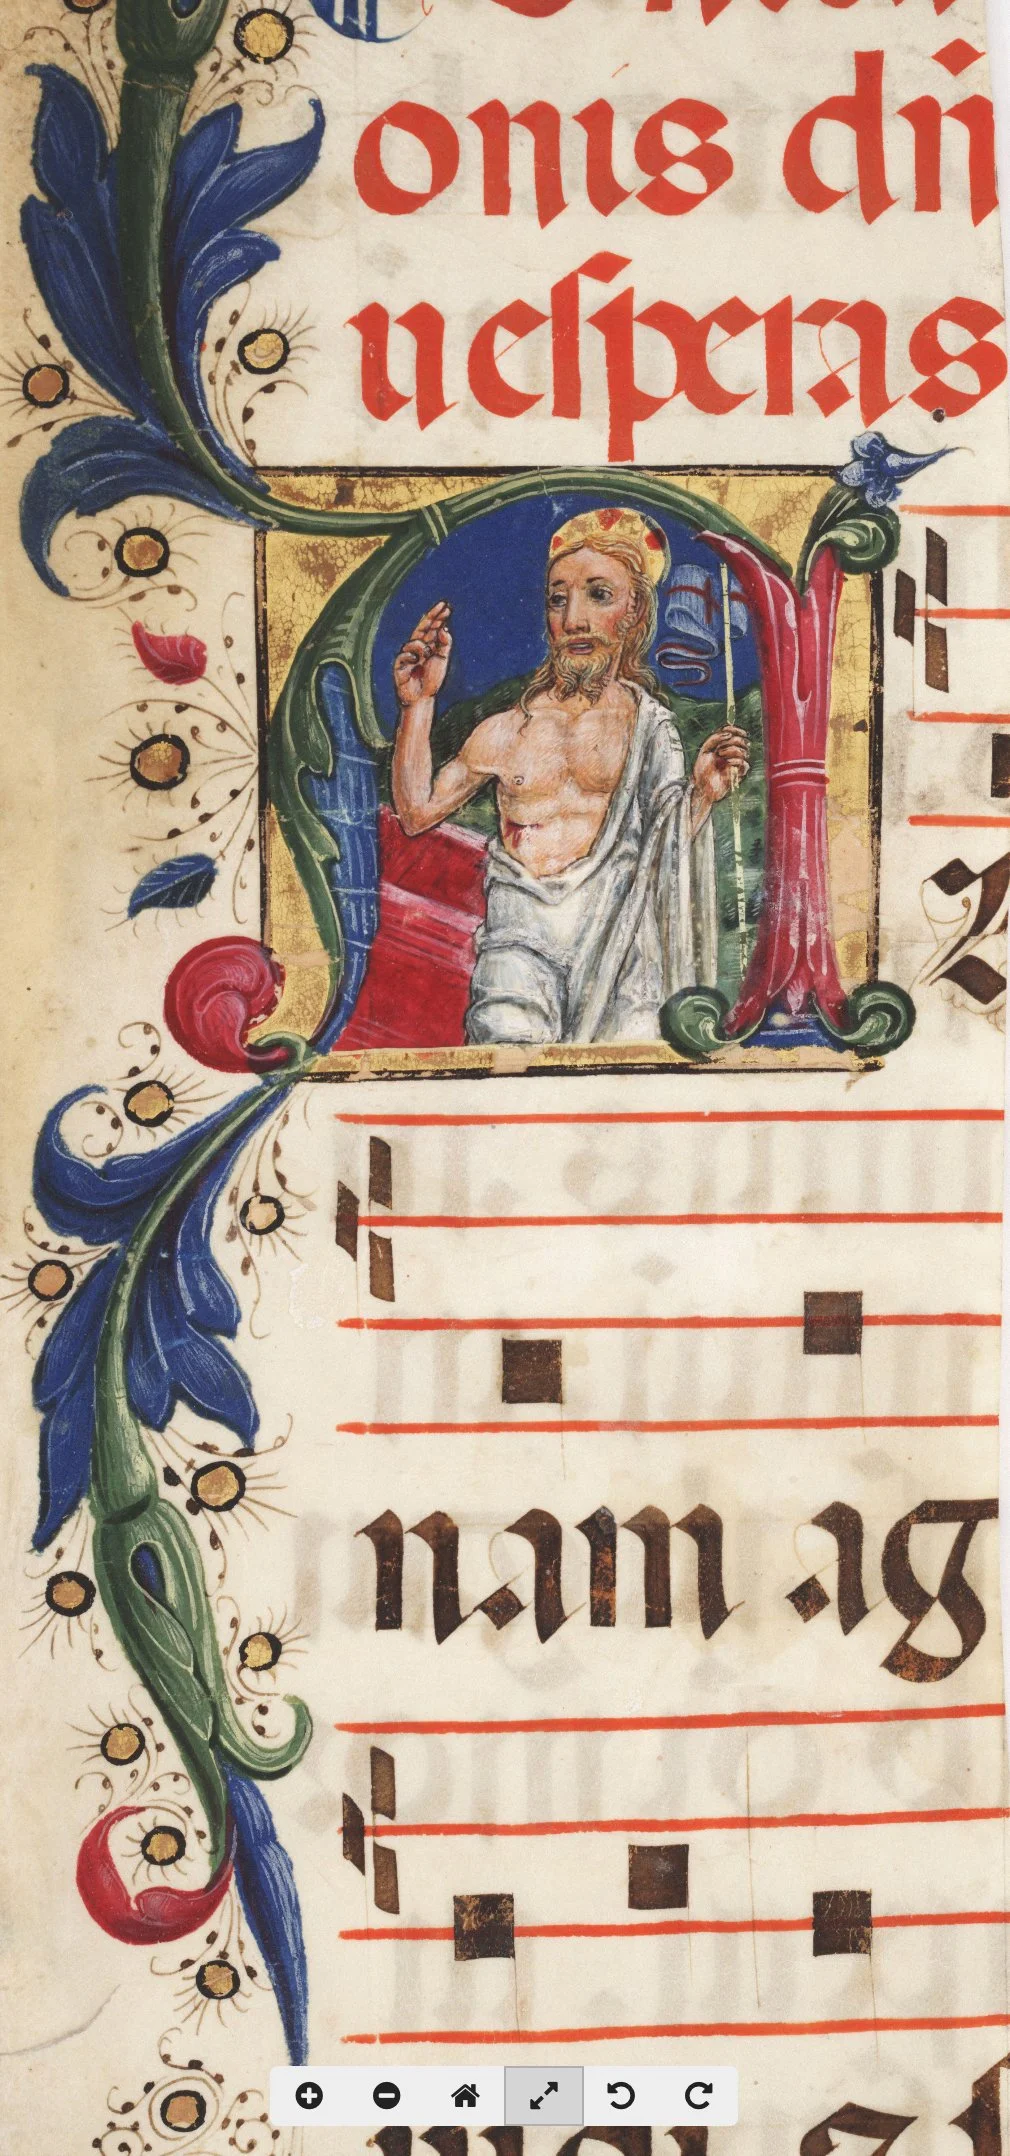 onis dn̄
uesperas
A
nam ag